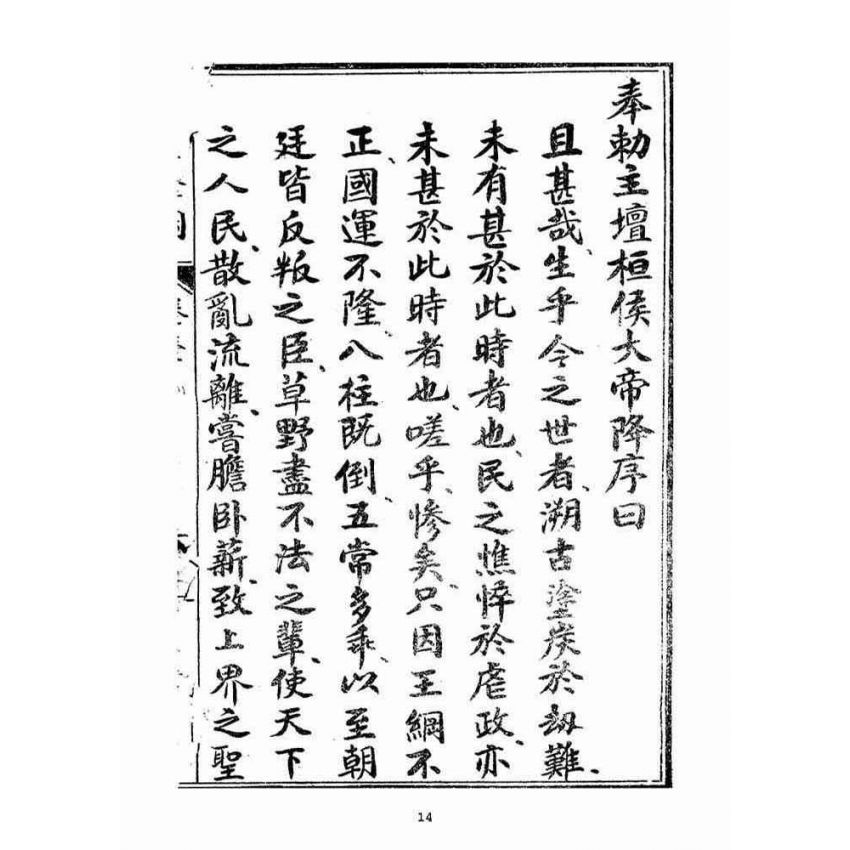 奉勅主壇桓侯大帝降序曰
且甚哉、生乎今之世者、溯古塗炭於劫難、
未有甚於此時者也、民之憔悴於虐政、亦
未甚於此時者也、嗟乎、慘矣、只因王綱不
正、國運不隆、八柱既倒、五常多乖、以至朝
廷皆反叛之臣、草野盡不法之輩、使天下
之人民、散亂流離、嘗膽臥薪、致上界之聖
14